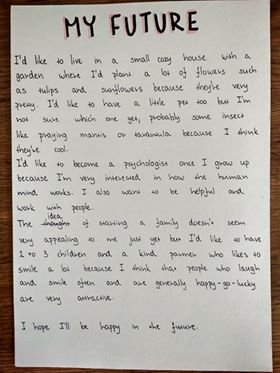 MY FUTURE
I'd like to live in a small cozy house with a
garden where I'd plant a lot of flowers such
as tulips and sunflowers because they're very
pretty. I'd like to have a little pet too but I'm
not sure which one yet, probably some insect
like praying mantis or tarantula because I think
they're cool.
I'd like to become a psychologist once I grow up
because I'm very interested in how the human
mind works. I also want to be helpful and
work with people.
The thought idea of starting a family doesn't seem
very appealing to me just yet but I'd like to have
2 to 3 children and a kind partner who likes to
smile a lot because I think that people who laugh
and smile often and are generally happy-go-lucky
are very attractive.
I hope I'll be happy in the future.